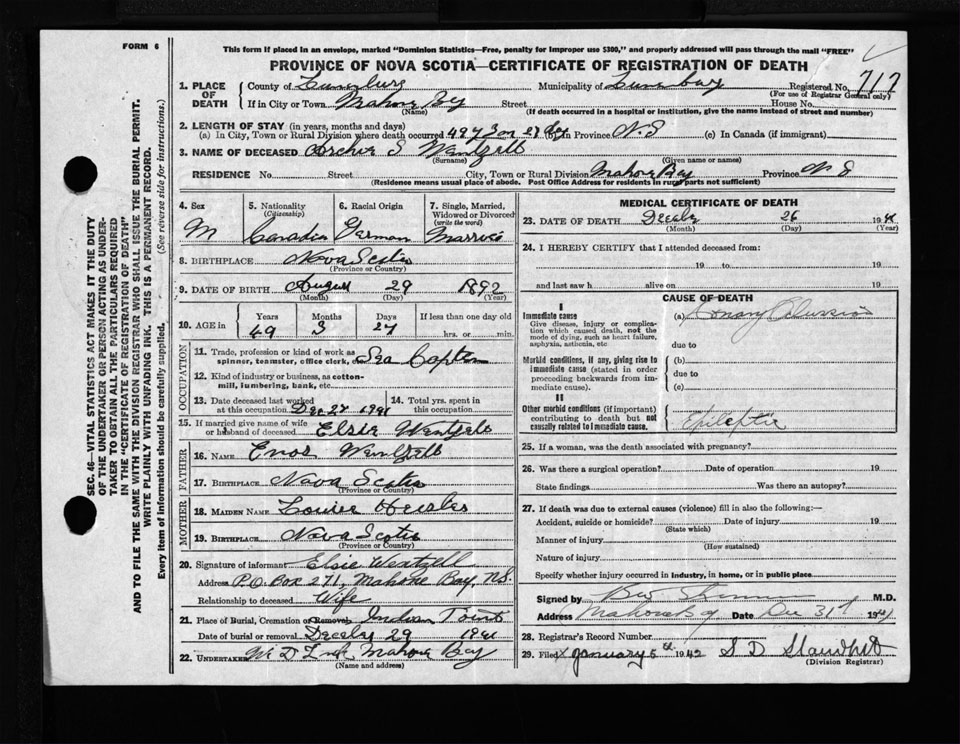 FORM 6
This form if placed in an envelope, marked "Dominion Statistics—Free, penalty for improper use $300," and properly addressed will pass through the mail "FREE"
PROVINCE OF NOVA SCOTIA—CERTIFICATE OF REGISTRATION OF DEATH
1. PLACE OF DEATH { County of Lunenburg Municipality of Lunenburg Registered No. 717
(For use of Registrar General only)
If in City or Town Mahone Bay Street House No.
(Name) (If death occurred in a hospital or institution, give the name instead of street and number)
2. LENGTH OF STAY (in years, months and days)
(a) In City, Town or Rural Division where death occurred 49 y 3 m 27 (b) In Province N.S (c) In Canada (if immigrant)
3. NAME OF DECEASED Archie S Wentzell
(Surname) (Given name or names)
RESIDENCE No. Street City, Town or Rural Division Mahone Bay Province N S
(Residence means usual place of abode. Post Office Address for residents in rural parts not sufficient)
4. Sex M
5. Nationality (Citizenship) Canadian
6. Racial Origin German
7. Single, Married, Widowed or Divorced (write the word) Married
8. BIRTHPLACE Nova Scotia
(Province or Country)
9. DATE OF BIRTH August 29 1892
(Month) (Day) (Year)
10. AGE in { Years Months Days If less than one day old
49 3 27 hrs. or min.
OCCUPATION
11. Trade, profession or kind of work as spinner, teamster, office clerk, etc. Sea Captain
12. Kind of industry or business, as cotton-mill, lumbering, bank, etc.
13. Date deceased last worked at this occupation Dec 24 1941
14. Total yrs. spent in this occupation
15. If married give name of wife or husband of deceased Elsie Wentzell
FATHER
16. NAME Enos Wentzell
17. BIRTHPLACE Nova Scotia
(Province or Country)
MOTHER
18. MAIDEN NAME Louise Heisler
19. BIRTHPLACE Nova Scotia
(Province or Country)
20. Signature of informant Elsie Wentzell
Address P.O. Box 271, Mahone Bay, N.S.
Relationship to deceased Wife
21. Place of Burial, Cremation or Removal Indian Point
Date of burial or removal 29 1941
22. UNDERTAKER Mahone Bay
(Name and address)
MEDICAL CERTIFICATE OF DEATH
23. DATE OF DEATH 26 194
(Month) (Day) (Year)
24. I HEREBY CERTIFY that I attended deceased from:
19 to 19
and last saw h alive on 19
CAUSE OF DEATH
I
Immediate cause
Give disease, injury or complication which caused death, not the mode of dying, such as heart failure, asphyxia, asthenia, etc
(a)
due to
Morbid conditions, if any, giving rise to immediate cause (stated in order proceeding backwards from immediate cause).
(b)
due to
(c)
II
Other morbid conditions (if important) contributing to death but not causally related to immediate cause.
Epileptic
25. If a woman, was the death associated with pregnancy?
26. Was there a surgical operation? Date of operation 19
State findings Was there an autopsy?
27. If death was due to external causes (violence) fill in also the following:—
Accident, suicide or homicide? Date of injury 19
(State which)
Manner of injury
(How sustained)
Nature of injury
Specify whether injury occurred in industry, in home, or in public place
Signed by M.D.
Address Mahone Bay Date Dec 31st 1941
28. Registrar's Record Number
29. Filed January 5th 1942 S D
(Division Registrar)
SEC. 46—VITAL STATISTICS ACT MAKES IT THE DUTY
OF THE UNDERTAKER OR PERSON ACTING AS UNDER-
TAKER TO OBTAIN ALL THE PARTICULARS REQUIRED
IN THE "CERTIFICATE OF REGISTRATION OF DEATH"
AND TO FILE THE SAME WITH THE DIVISION REGISTRAR WHO SHALL ISSUE THE BURIAL PERMIT.
WRITE PLAINLY WITH UNFADING INK. THIS IS A PERMANENT RECORD.
Every item of information should be carefully supplied. (See reverse side for instructions.)